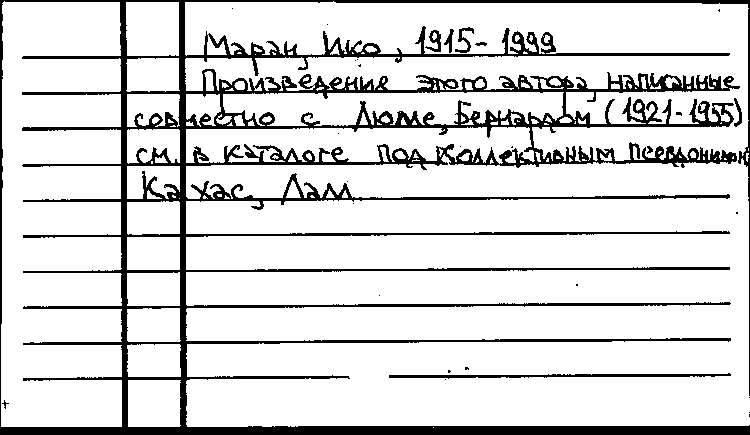 Маран, Ико, 1915-1999
Произведение этого автора, написанные
совместно с Люме, Бернардом (1921-1955)
см. в каталоге под коллективным псевдонимом
Кахас, Лам